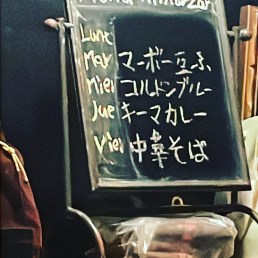 Lun
Mar マーボー豆ふ
Mier コルドンブルー
Jue キーマカレー
Vier 中華そば